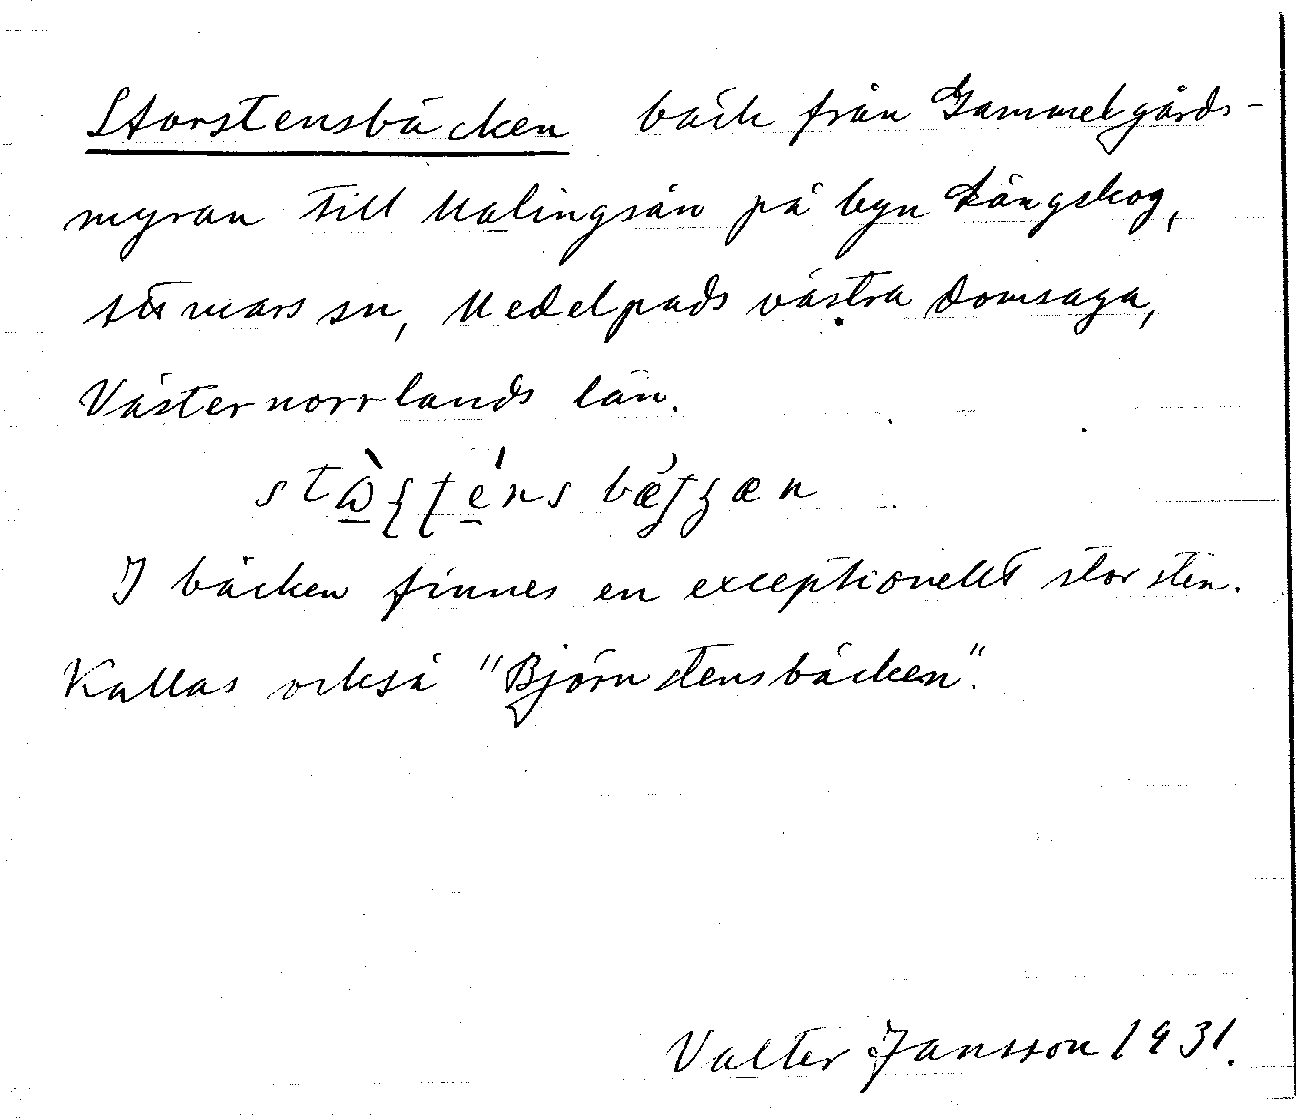 Storstensbäcken bäck från Gammelgårds-
myran till Malingsån på byn Långskog,
Attmars sn, Medelpads västra domsaga,
Västernorrlands län.
I bäcken finnes en exceptionellt stor sten.
Kallas också "Björnstensbäcken".
Valter Jansson 1931.